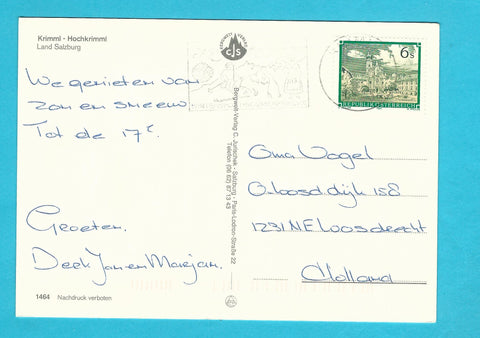 Krimml - Hochkrimml
Land Salzburg
We genieten van
zon en sneeuw
Tot de 17e.
Groeten.
Derk Jan en Marjan.
1464 Nachdruck verboten
BERGWELT VERLAG
CJS
Bergwelt-Verlag C. Jurischek - Salzburg - Paris-Lodron-Straße 22
Telefon (06 62) 87 13 43
6 S
REPUBLIK ÖSTERREICH
Oma Vogel
O. loosd. dijk 158
1231 NE Loosdrecht
Holland